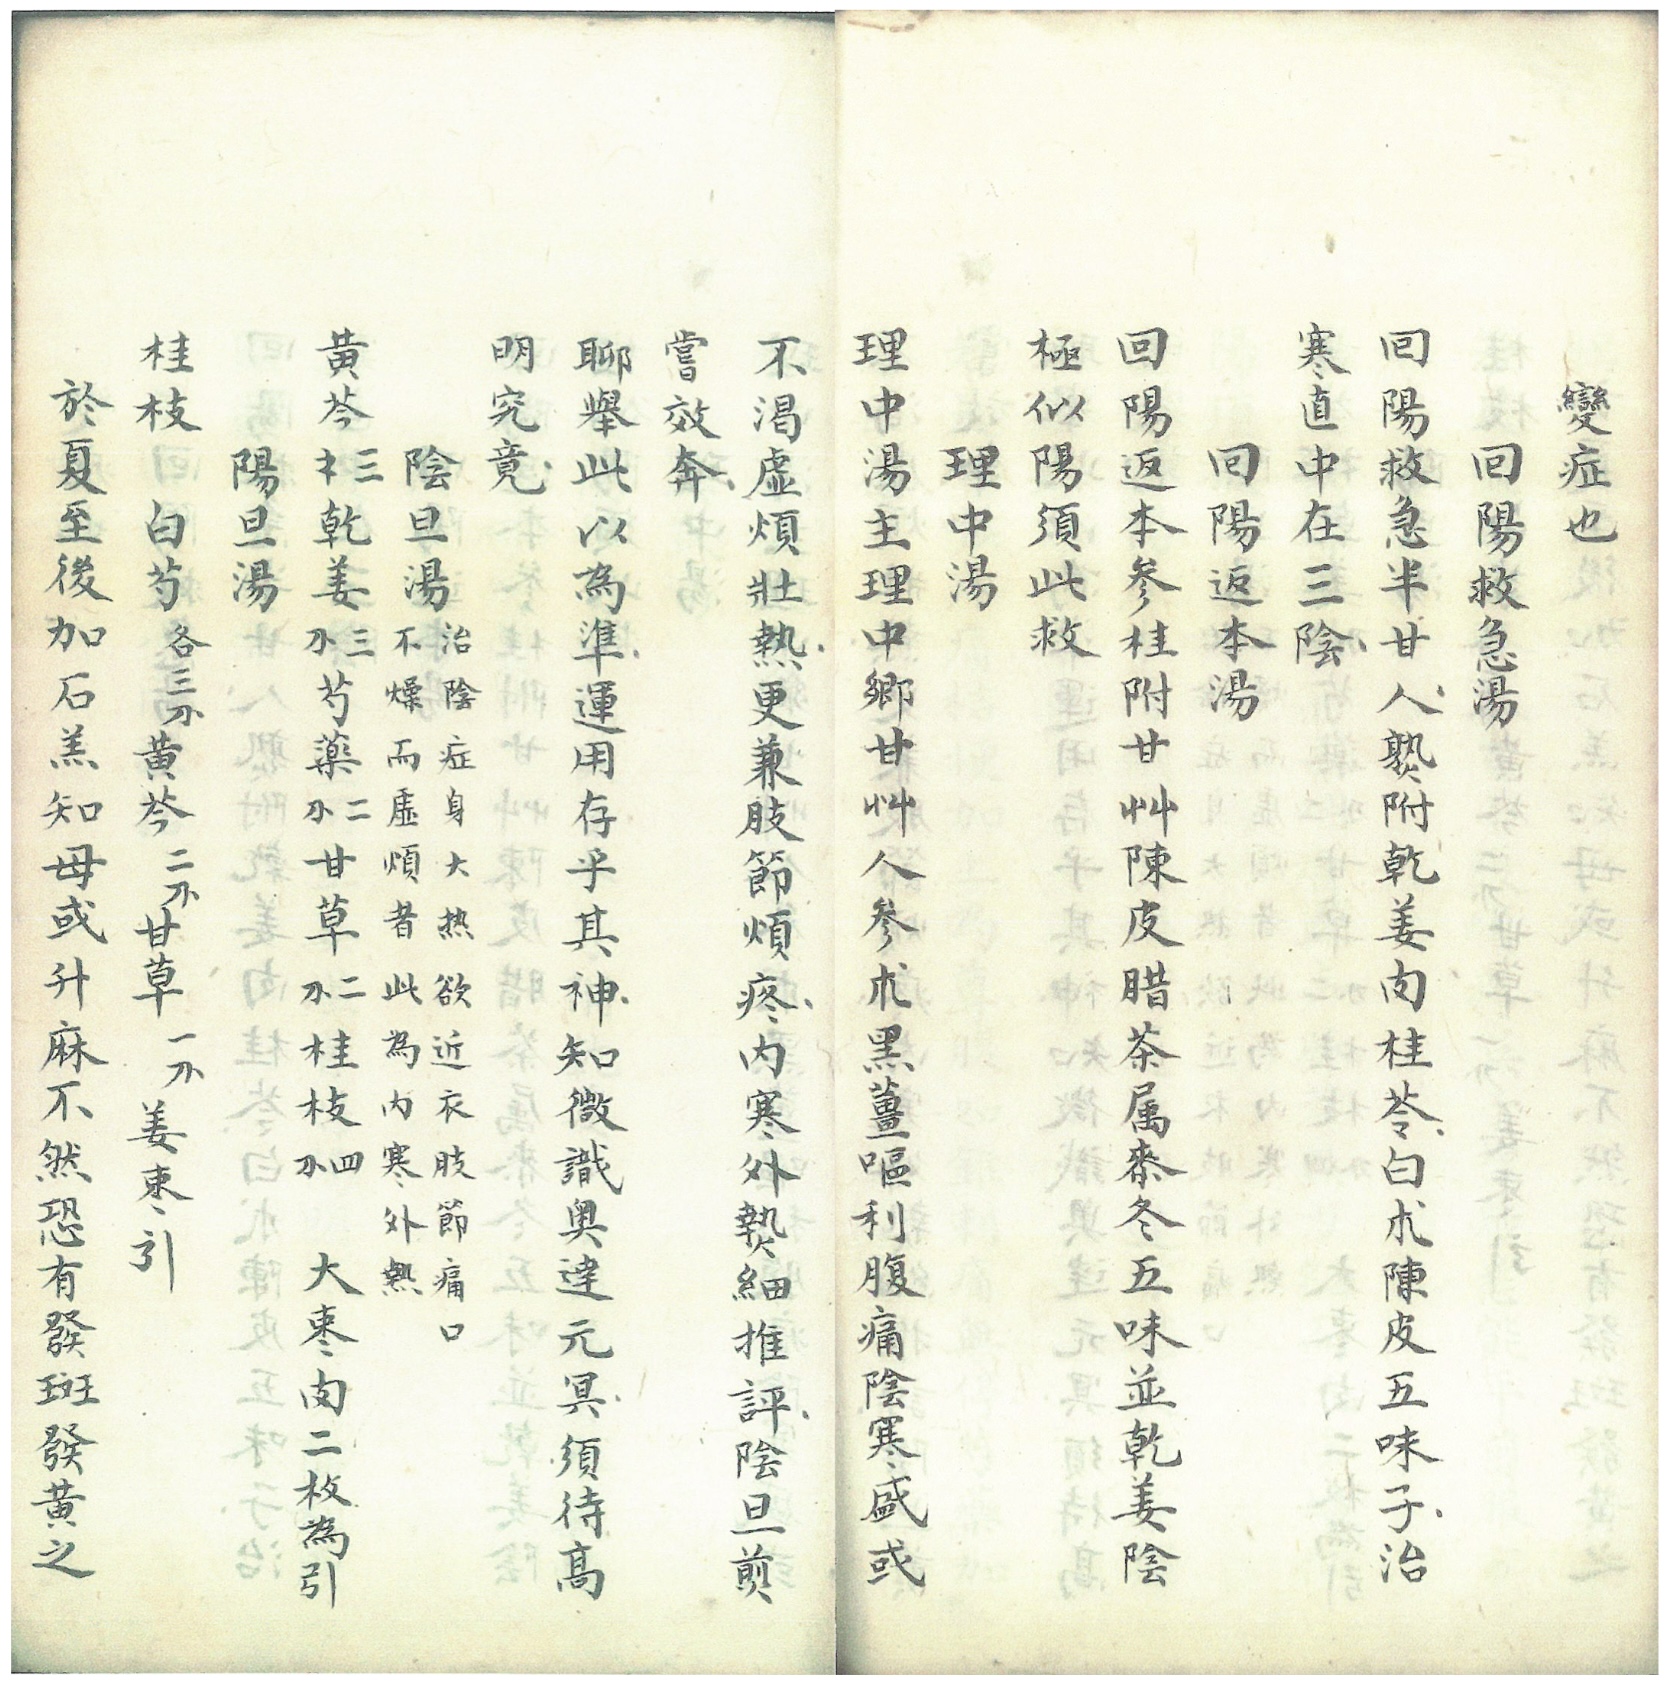 變症也
回陽救急湯
回陽救急半甘人熟附乾姜肉桂苓白朮陳皮五味子治
寒直中在三陰
回陽返本湯
回陽返本參桂附甘艸陳皮腊茶属麥冬五味並乾姜陰
極似陽須此救
理中湯
理中湯主理中鄉甘艸人參朮黑薑嘔利腹痛陰寒盛或
不渴虛煩壯熱更兼肢節煩疼內寒外熱細推評陰旦煎
嘗效奔
聊舉此以為準運用存乎其神知微識奥達元冥須待高
明究竟
陰旦湯 治陰症身大热欲近衣肢節痛口
不燥而虛煩者此為內寒外熱
黃芩三才乾姜三分芍藥二分甘草二分桂枝四分 大枣肉二枚為引
陽旦湯
桂枝 白芍各三分黃芩二分甘草一分姜枣引
於夏至後加石羔知母或升麻不然恐有發斑發黃之